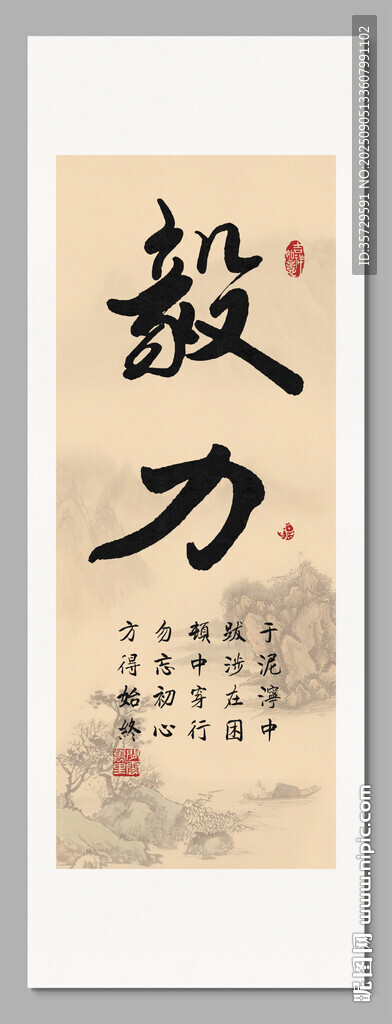 毅力
于泥濘中
跋涉在困
頓中穿行
勿忘初心
方得始終
ID:35729591 NO:20250905133607991102
昵图网 www.nipic.com